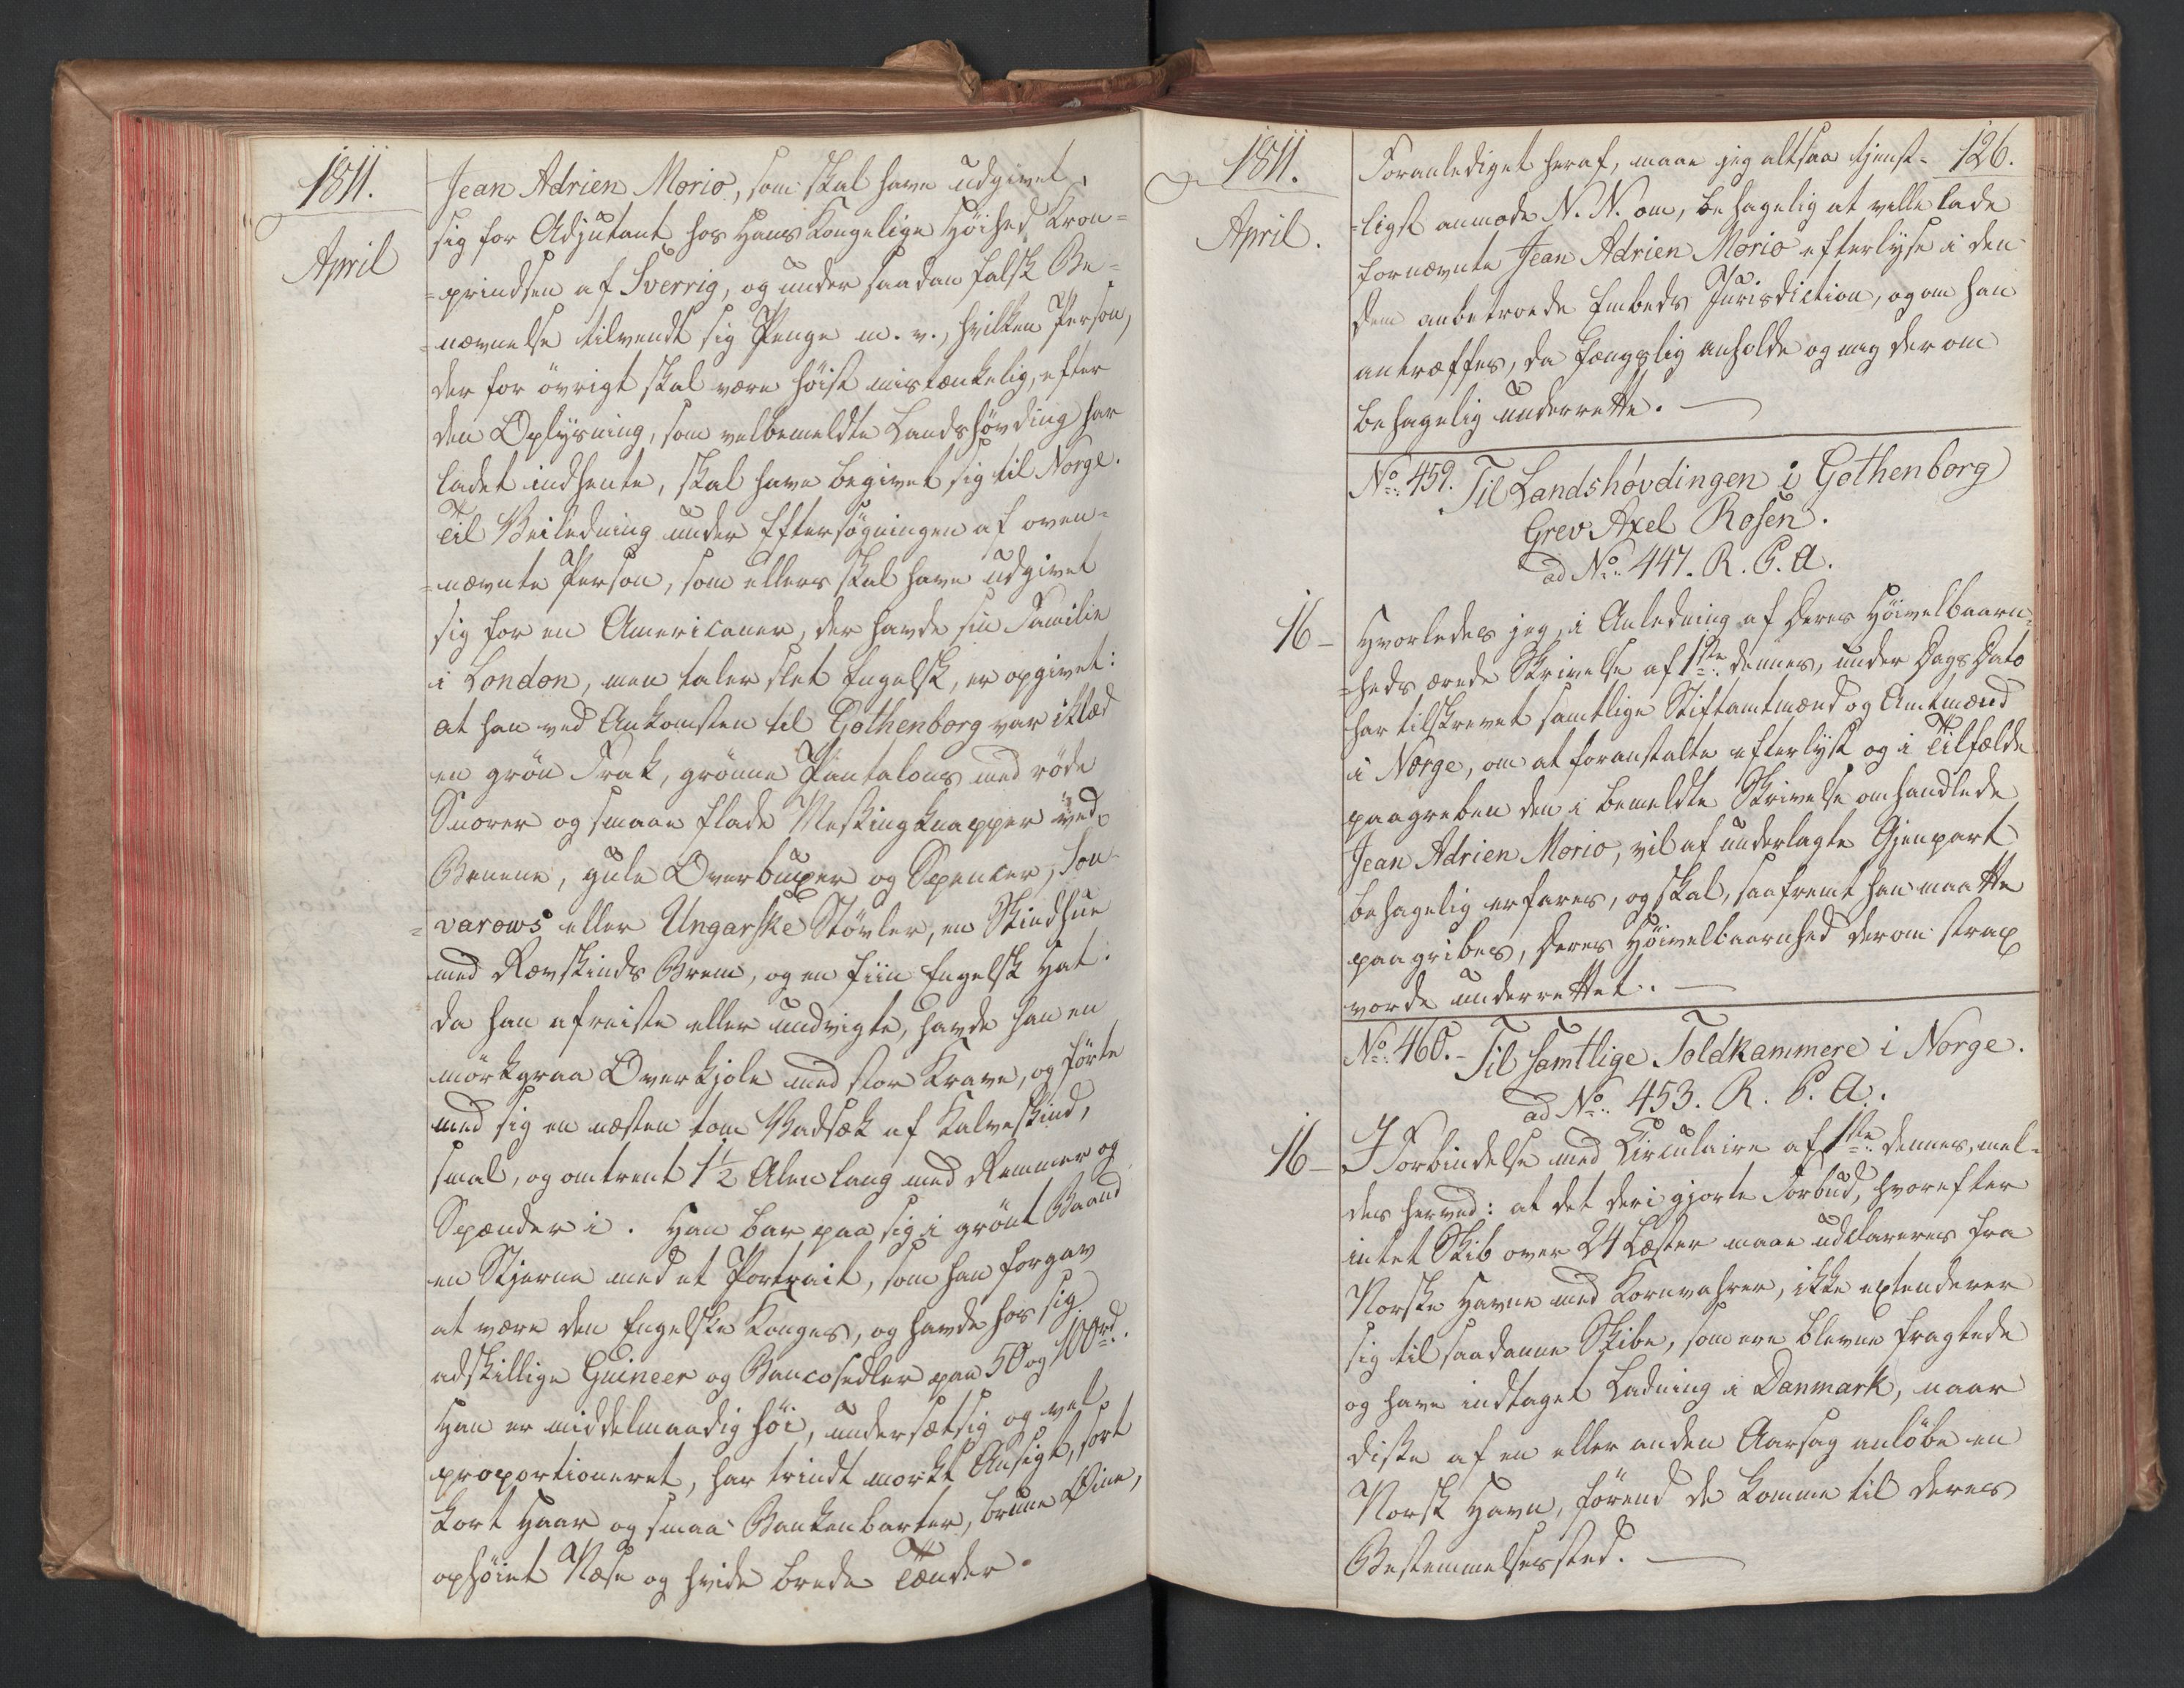 1811.
April
Jean Adrien Morio, som skal have udgivet
sig for Adjutant hos Hans Kongelige Høihed Kron-
=prindsen af Sverrig, og under saadan falsk Be-
=nævnelse tilvendt sig Penge m. v., hvilken Person,
der for övrigt skal være höist mistænkelig, efter
den Oplysning, som velbemeldte Landshövding har
ladet indhente, skal have begivet sig til Norge.
Til Veiledning under Eftersögningen af oven-
=nævnte Person, som ellers skal have udgivet
sig for en Americaner, der havde sin Familie
i London, men taler slet Engelsk, er opgivet:
at han ved Ankomsten til Gothenborg var iklæd
en grön Frak, grönne Pantalons med röde
Snorer og smaae flade Messingknapper ved
Benene, gule Overbuxer og Spencer, Sou-
=varows eller Ungarske Stövler, en Skindhue
med Rævskinds Brem, og en fiin Engelsk Hat.
da han afreiste eller undvigte, havde han en
mörkgraa Overkjole med stor Krave, og förte
med sig en næsten tom Vadsæk af Kalveskind,
smal, og omtrent 1½ Alen lang med Remmer og
Spænder i. Han bar paa sig i grönt Baand
en Stjerne med et Portrait, som han forgav
at være den Engelske Konges, og havde hos sig
adskillige Guineer og Bancosedler paa 50 og 100rd.
Han er middelmaadig höi, undersætsig og vel
proportioneret, har trindt morkt Ansigt, sort
kort Haar og smaa Bakkenbarter, brune Öine,
ophöiet Næse og hvide brede Tænder.
1811.
April.
126.
Foranlediget heraf, maae jeg altsaa tjenst-
=ligst anmode N. N. om, behagelig at ville lade
fornævnte Jean Adrien Morio efterlyse i den
Dem anbetroede Embeds Jurisdiction, og om han
antræffes, da fængslig anholde og mig derom
behagelig underrette.
No. 459. Til Landshövdingen i Gothenborg
Grev Axel Rosen.
ad No. 447. R. P. A.
16 - Hvorledes jeg, i Anledning af Deres Höivelbaarn-
=heds ærede Skrivelse af 1ste dennes, under Dags Dato
har tilskrevet samtlige Stiftamtmænd og Amtmænd
i Norge, om at foranstalte efterlyst og i Tilfælde
paagreben den i bemeldte Skrivelse omhandlede
Jean Adrien Morio, vil af underlagte Gjenpart
behagelig erfares, og skal, saafremt han maatte
paagribes, Deres Höivelbaarnhed derom strax
vorde underrettet.
No. 460. - Til Samtlige Toldkammere i Norge.
ad No. 453. R. P. A.
16 - I Forbindelse med Circulaire af 1ste dennes, mel-
des herved: at det deri gjorte Forbud, hvorefter
intet Skib over 24 Læster maae udklareres fra
Norske Havne med Kornvahrer, ikke extenderer
sig til saadanne Skibe, som ere blevne fragtede
og have indtaget Ladning i Danmark, naar
disse af en eller anden Aarsag anlöbe en
Norsk Havn, förend de komme til deres
Bestemmelsessted.